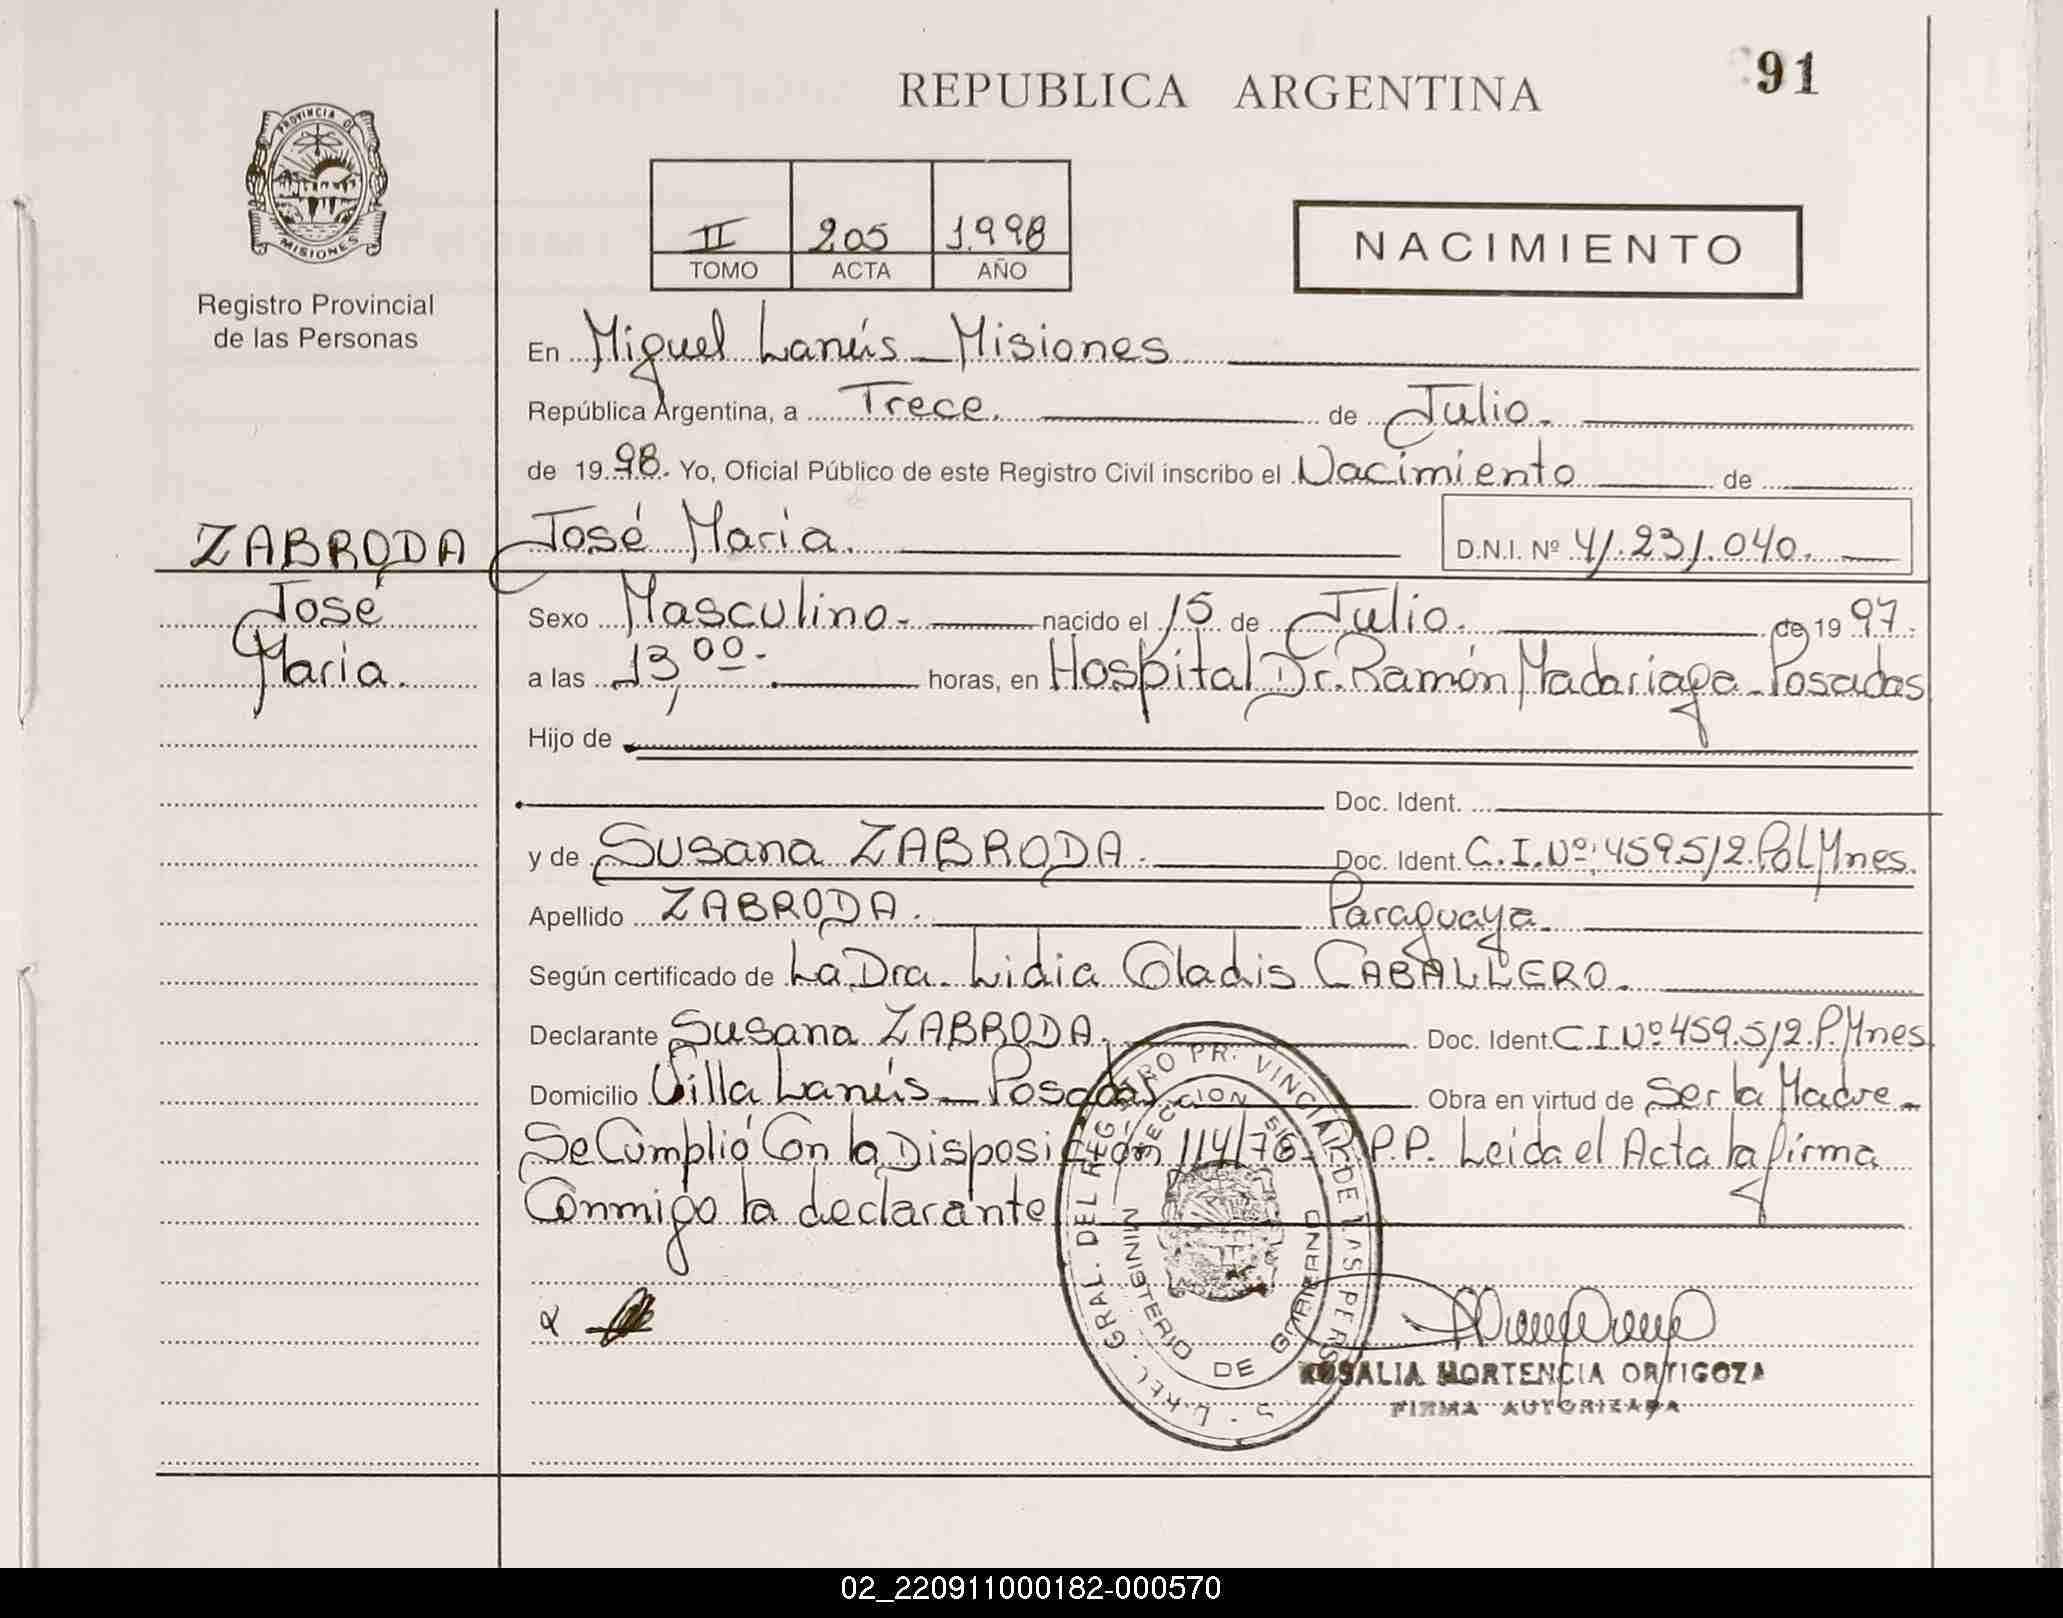 91
REPUBLICA ARGENTINA
PROVINCIA DE
MISIONES
Registro Provincial
de las Personas
II 205 1.998
TOMO ACTA AÑO
NACIMIENTO
En Miguel Lanús - Misiones
República Argentina, a Trece. de Julio.
de 1998. Yo, Oficial Público de este Registro Civil inscribo el Nacimiento de
ZABRODA José Maria. D.N.I. Nº 41.231.040.
José
Maria.
Sexo Masculino. nacido el 15 de Julio. de 1997.
a las 13,00. horas, en Hospital Dr. Ramón Madariaga - Posadas
Hijo de
Doc. Ident.
y de Susana ZABRODA. Doc. Ident. C.I.Nº: 459.512. Pol Mnes.
Apellido ZABRODA. Paraguaya.
Según certificado de La Dra. Lidia Gladis CABALLERO.
Declarante Susana ZABRODA. Doc. Ident. C.I.Nº 459.512. P. Mnes
Domicilio Villa Lanús - Posadas Obra en virtud de Ser la Madre -
Se Cumplió Con la Disposición 114/76 - R.P.P. Leida el Acta la firma
Conmigo la declarante
MINISTERIO DE GOBIERNO
ROSALIA HORTENCIA ORTIGOZA
FIRMA AUTORIZADA
02_220911000182-000570